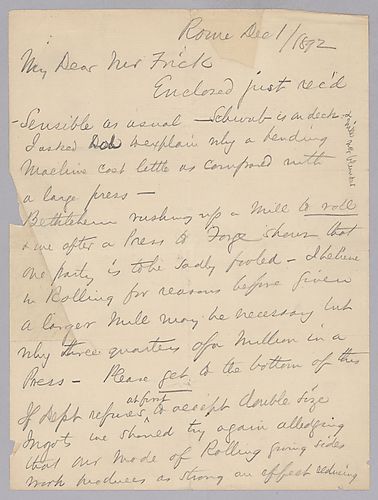 Rome Dec 1/1892
My Dear Mr Frick
Enclosed just rec'd
- Sensible as usual - Schwab is on deck.
I asked to explain why a bending
Machine cost little as compared with
a large press -
Bethlehem rushing up a Mill to roll
& we after a Press to Forge shows that
one party is to be sadly fooled - I believe
in Rolling for reasons before given
a larger Mill may be necessary but
why three quarters of a Million in a
Press - Please get to the bottom of this
If Dept refuses at first to accept double size
Ingots we should try again alledging
that our mode of Rolling giving sides
work produces as strong an effect reducing